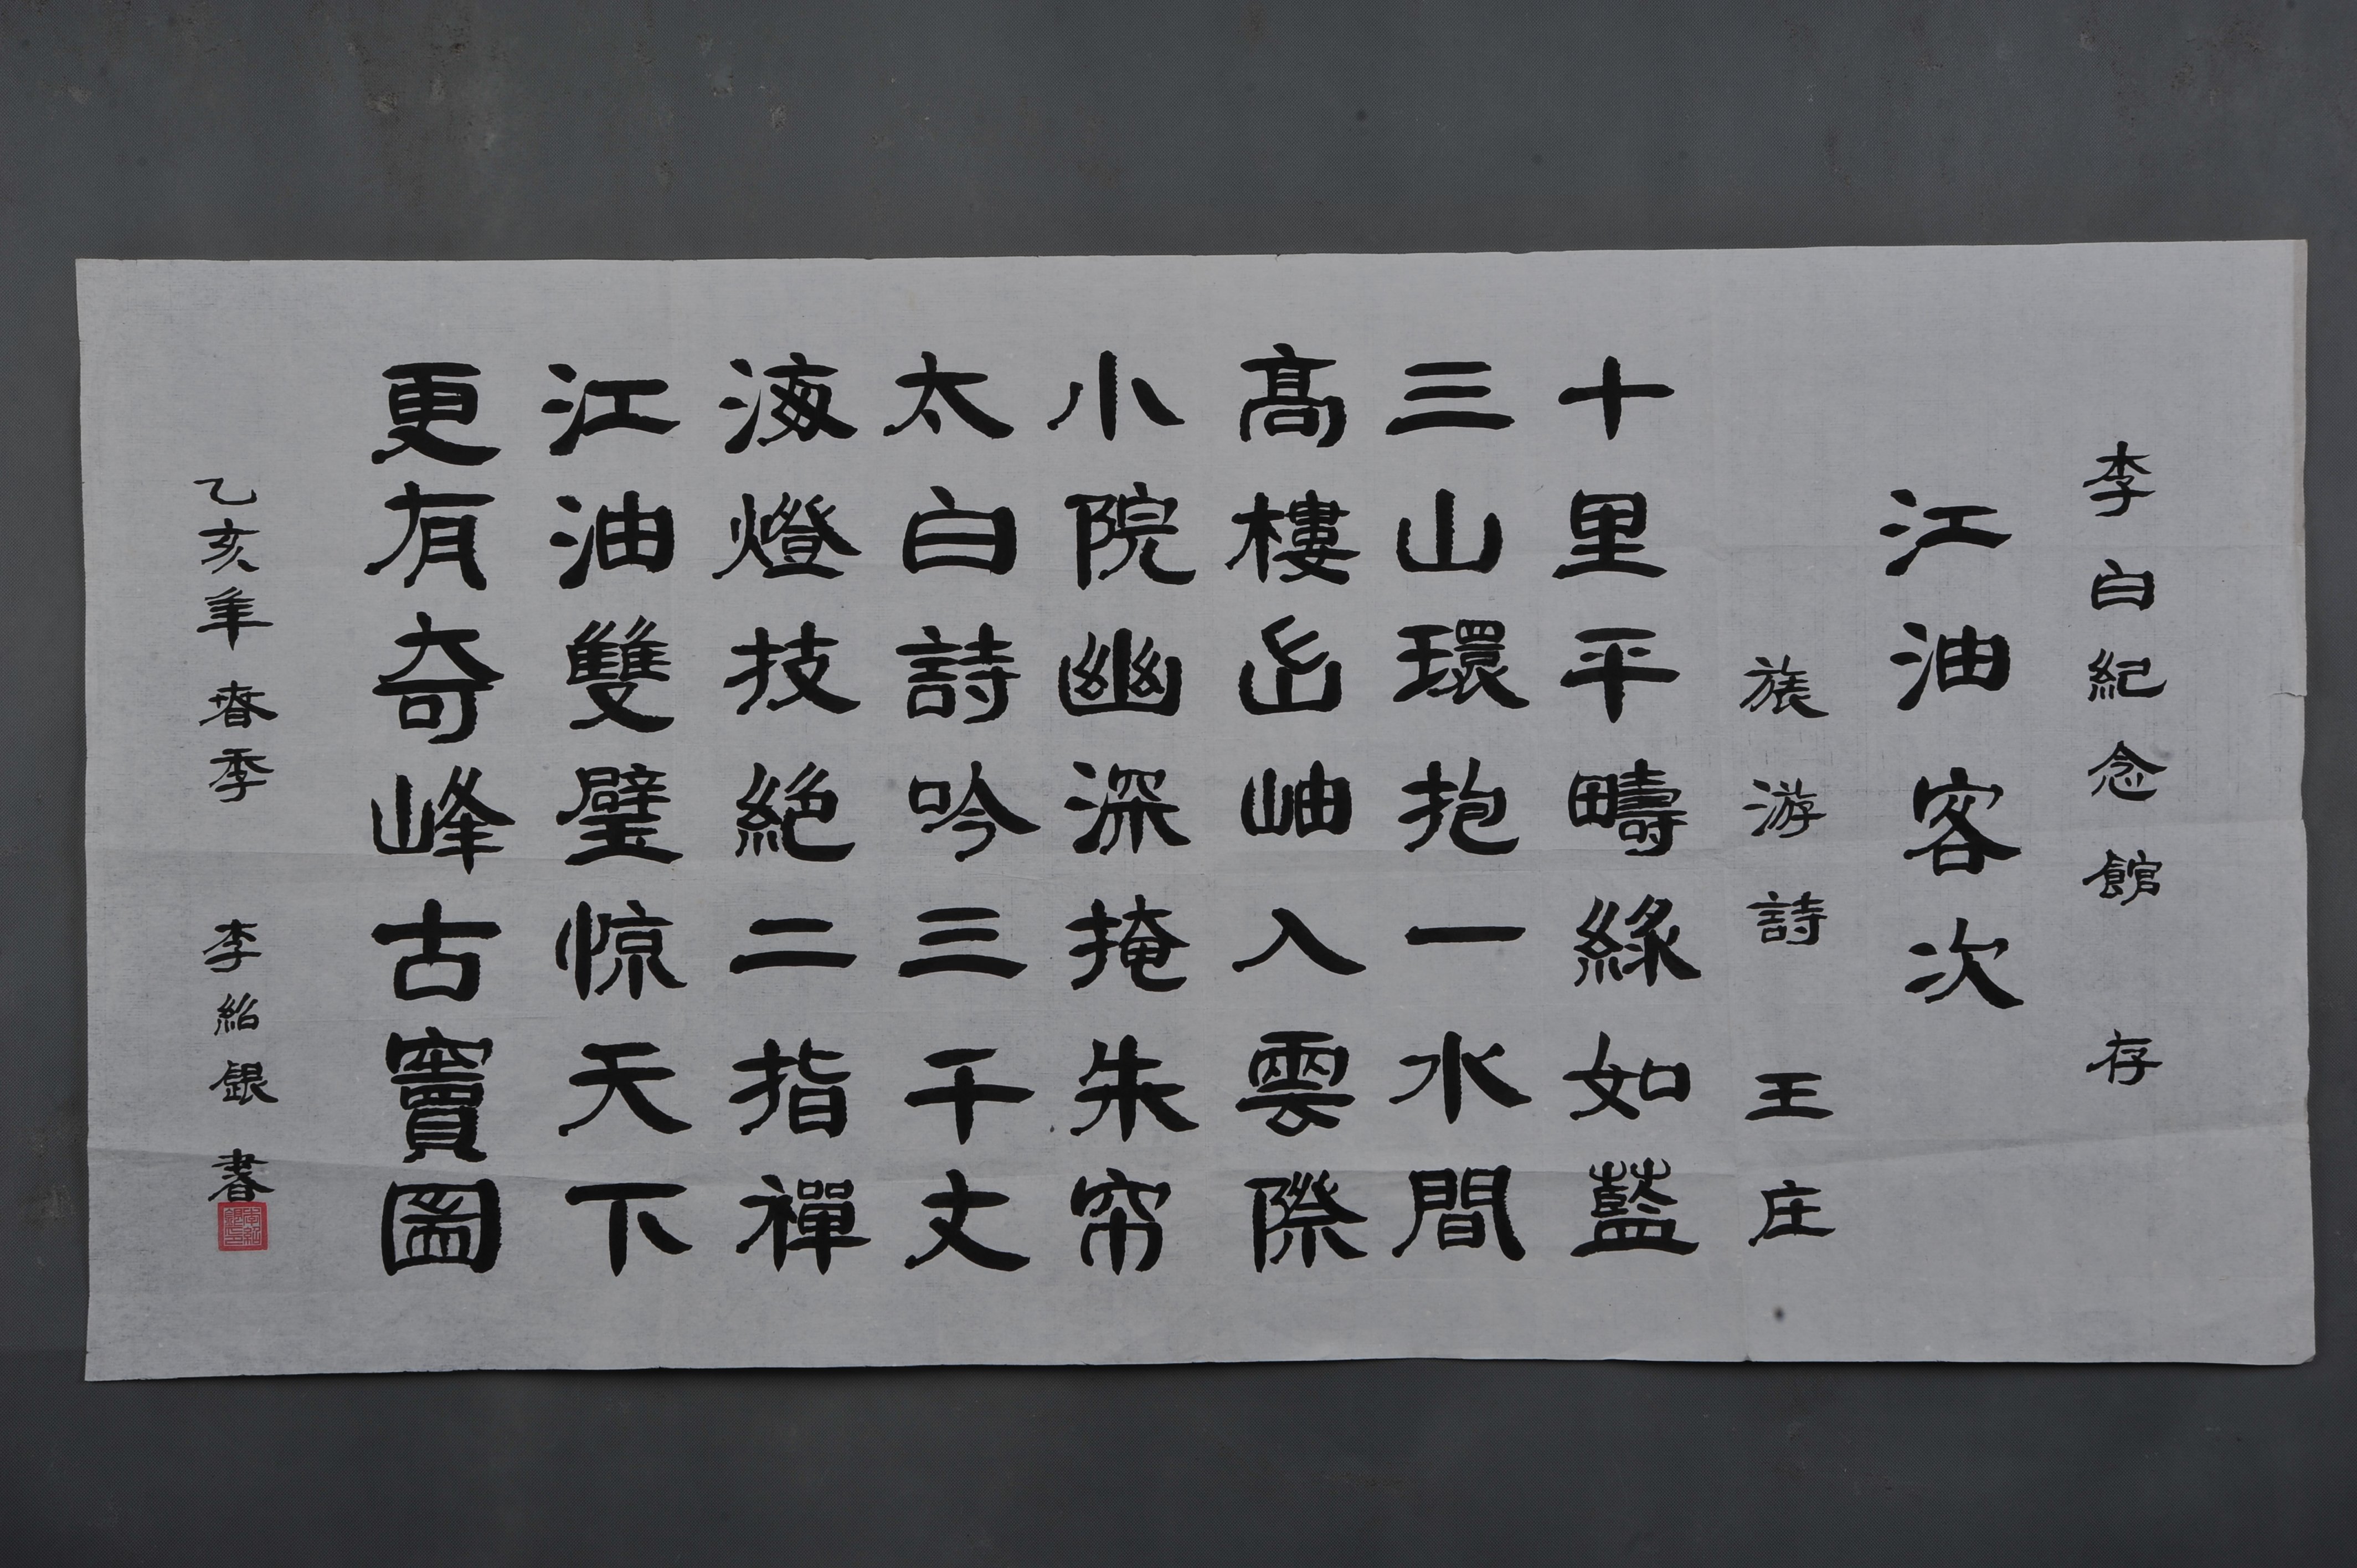 李白紀念館 存
江油客次
旅游詩 王庄
十里平疇綠如藍
三山環抱一水間
髙樓出岫入雲際
小院幽深掩朱帘
太白詩吟三千丈
海燈技絶二指禪
江油雙璧惊天下
更有奇峰古竇圖
乙亥年春季 李紹銀 書